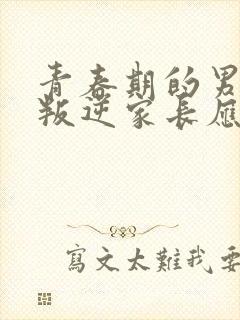 青春期的男
叛逆家長應
寫文太難我要